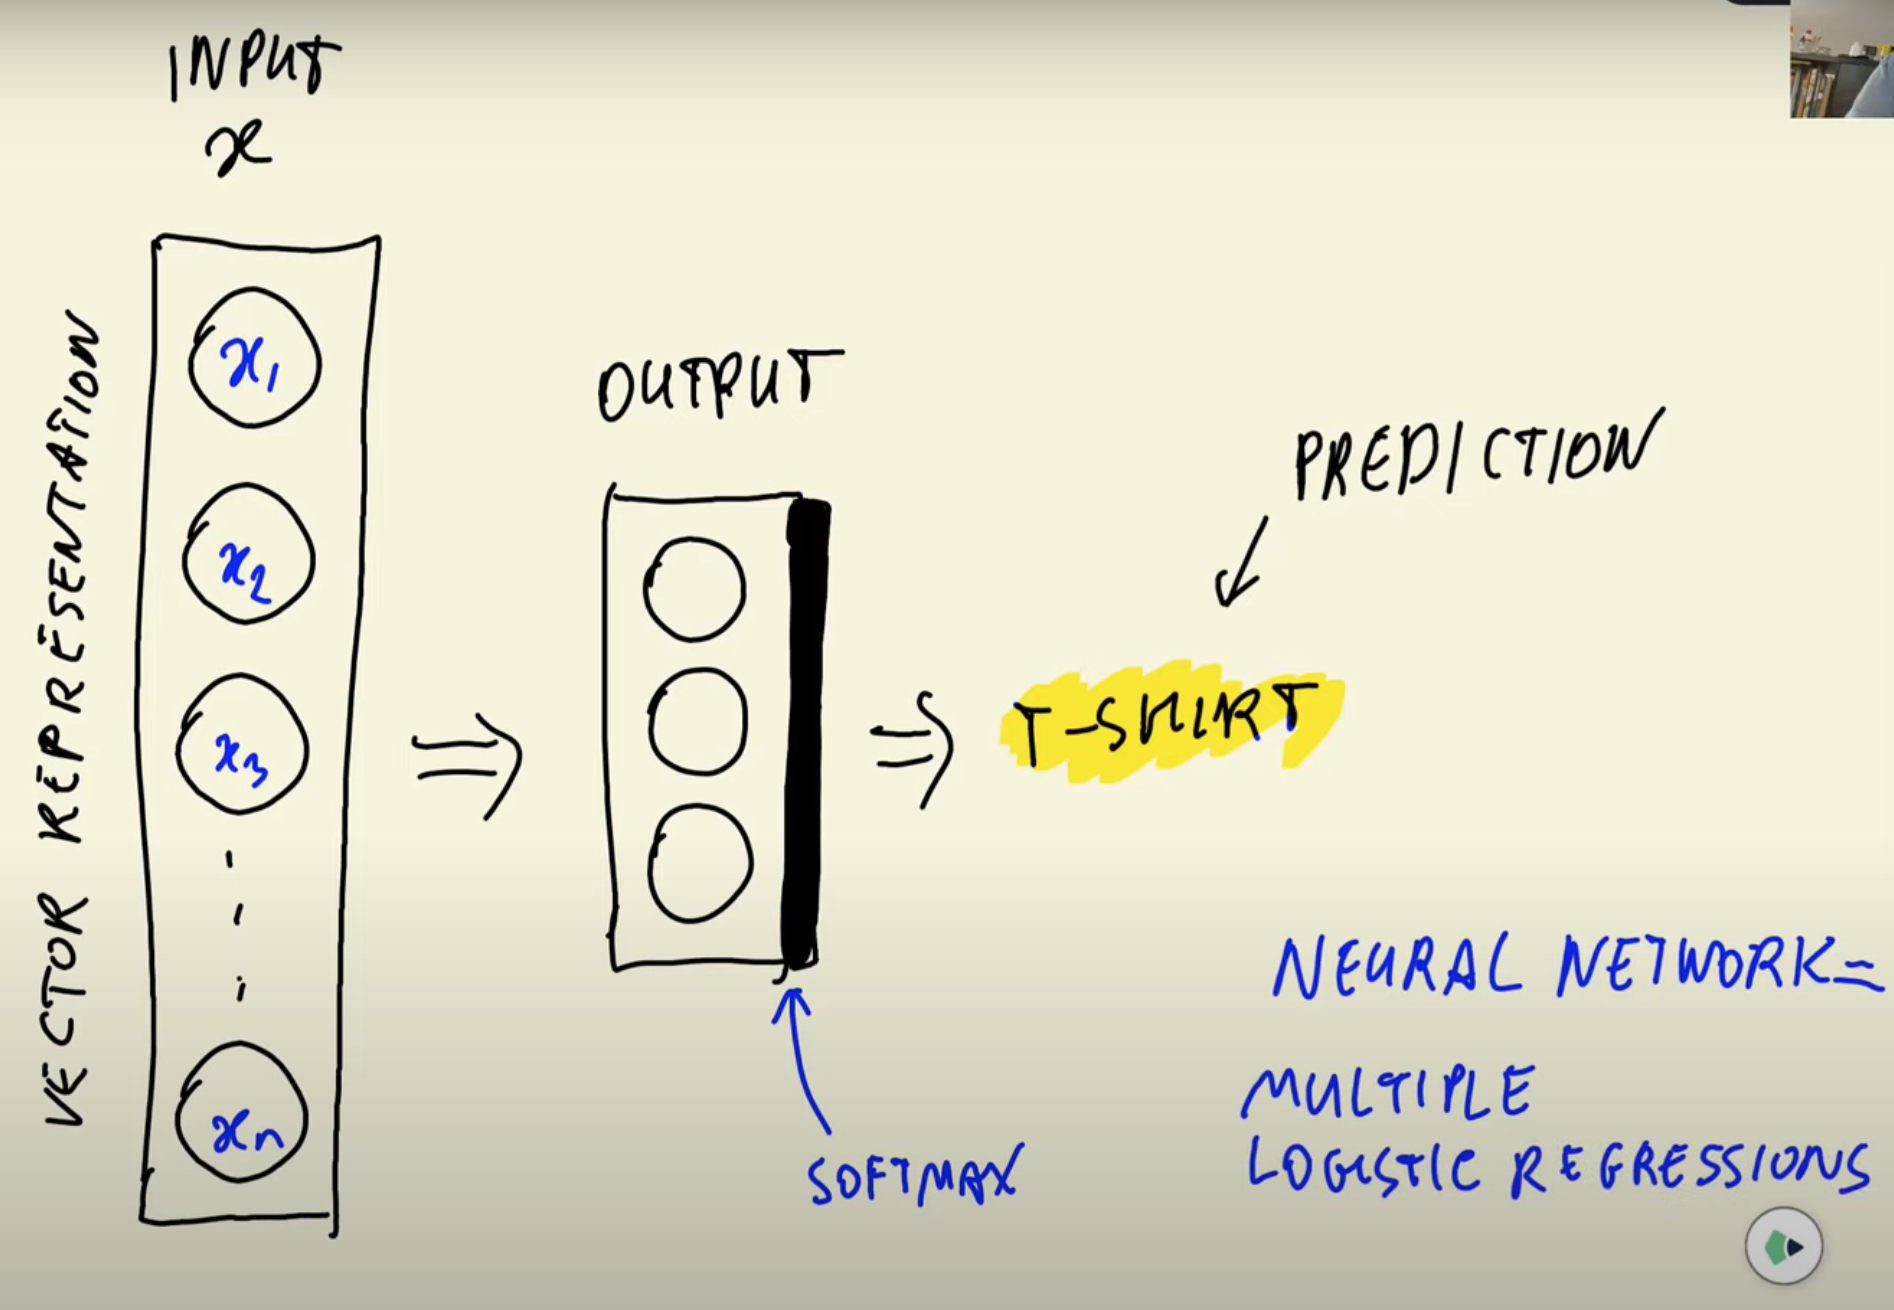 INPUT
x
VECTOR REPRESENTATION
x1
x2
x3
xn
OUTPUT
SOFTMAX
PREDICTION
T-SHIRT
NEURAL NETWORK=
MULTIPLE
LOGISTIC REGRESSIONS